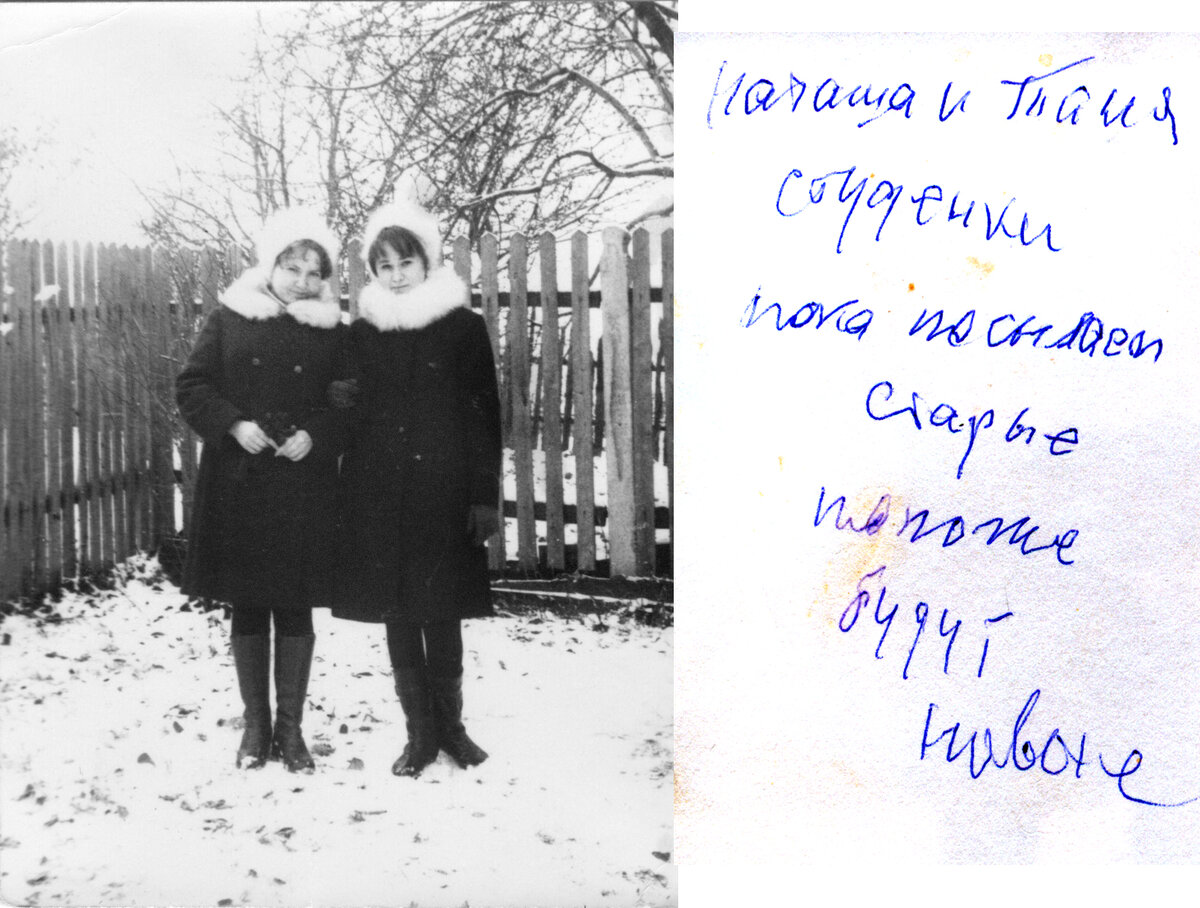 Наташа и Таня
студенки
пока посылаем
старые
попоже
будут
новые